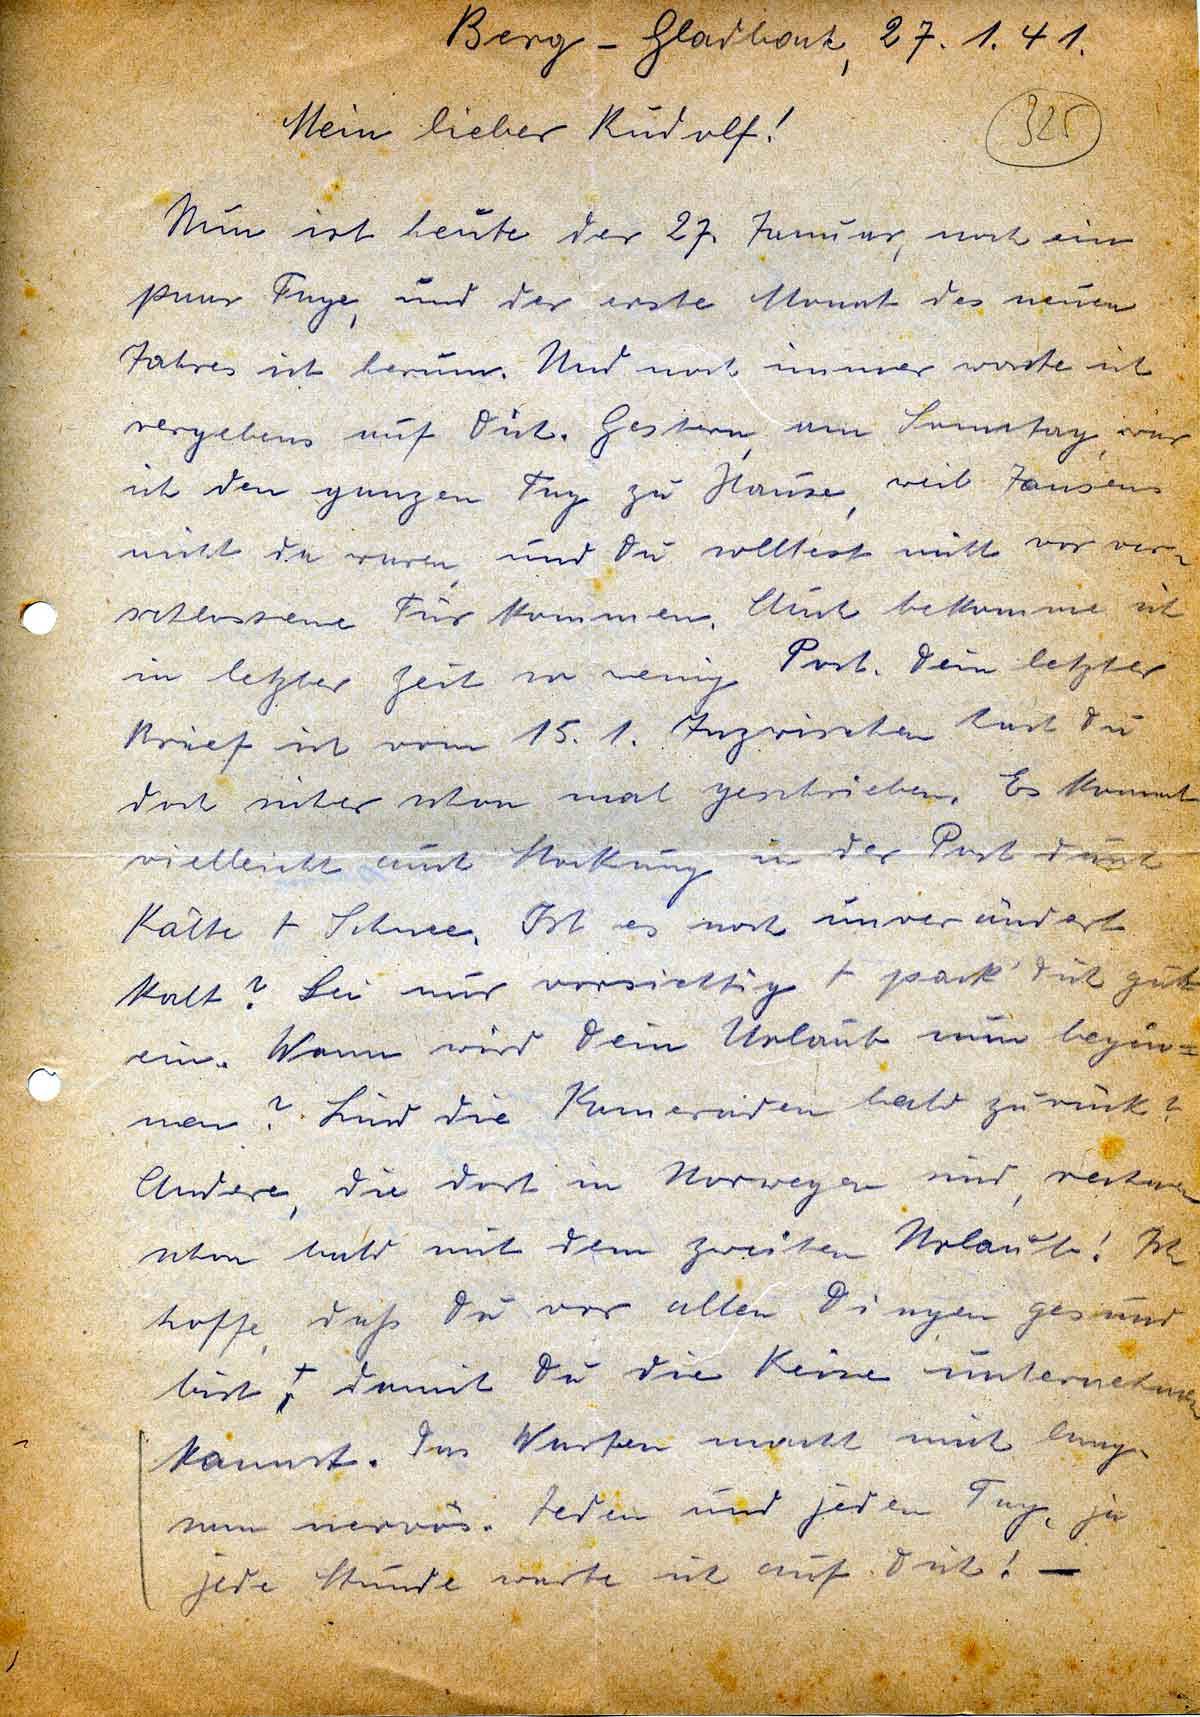 Berg-Gladbach, 27. 1. 41.
325
Mein lieber Rudolf!
Nun ist heute der 27. Januar, noch ein
paar Tage, und der erste Monat des neuen
Jahres ist herum. Und noch immer warte ich
vergebens auf Dich. Gestern, am Sonntag, war
ich den ganzen Tag zu Hause, weil Jansens
nicht da waren, und Du solltest nicht vor ver-
schlossene Tür kommen. Auch bekomme ich
in letzter Zeit so wenig Post. Dein letzter
Brief ist vom 15. 1. Inzwischen hast Du
doch sicher schon mal geschrieben. Es kommt
vielleicht auch Stockung in der Post durch
Kälte + Schnee. Ist es noch unverändert
kalt? Sei nur vorsichtig + pack' Dich gut
ein. Wann wird Dein Urlaub nun begin=
nen? Sind die Kameraden bald zurück?
Andere, die dort in Norwegen sind, rechnen
schon bald mit dem zweiten Urlaub! Ich
hoffe, daß Du vor allen Dingen gesund
bist +, damit Du die Reise unternehmen
kannst. Das Warten macht mich lang-
sam nervös. Jeden und jeden Tag, ja
jede Stunde warte ich auf Dich! —